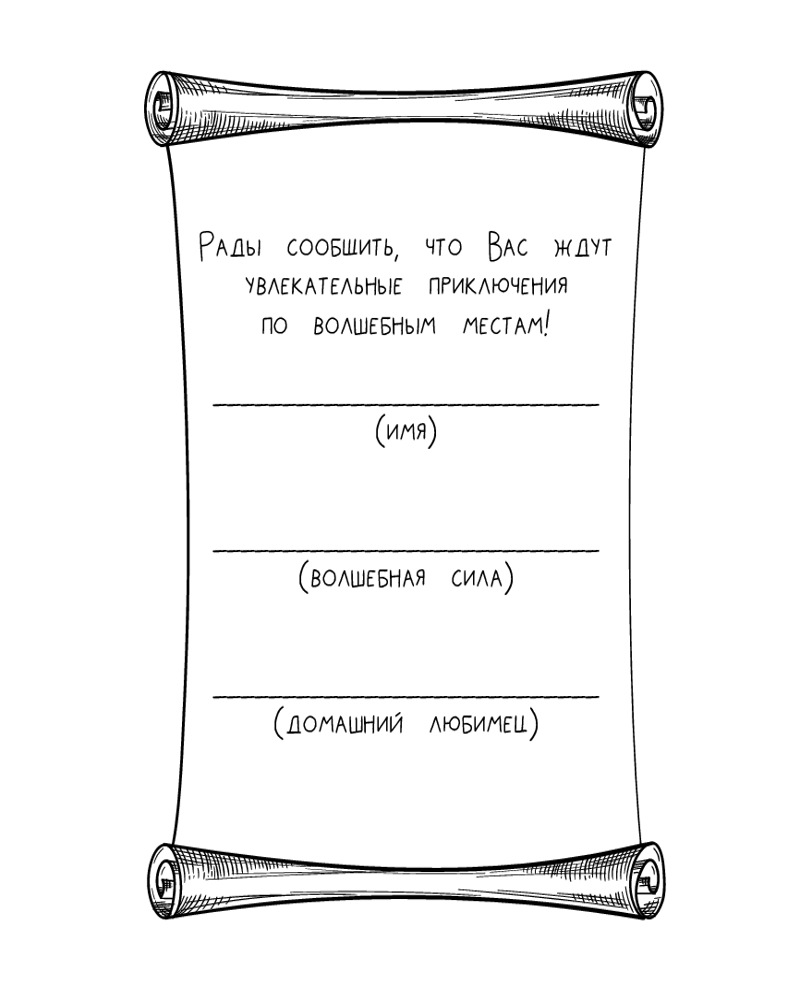 Рады сообщить, что Вас ждут
увлекательные приключения
по волшебным местам!
(имя)
(волшебная сила)
(домашний любимец)